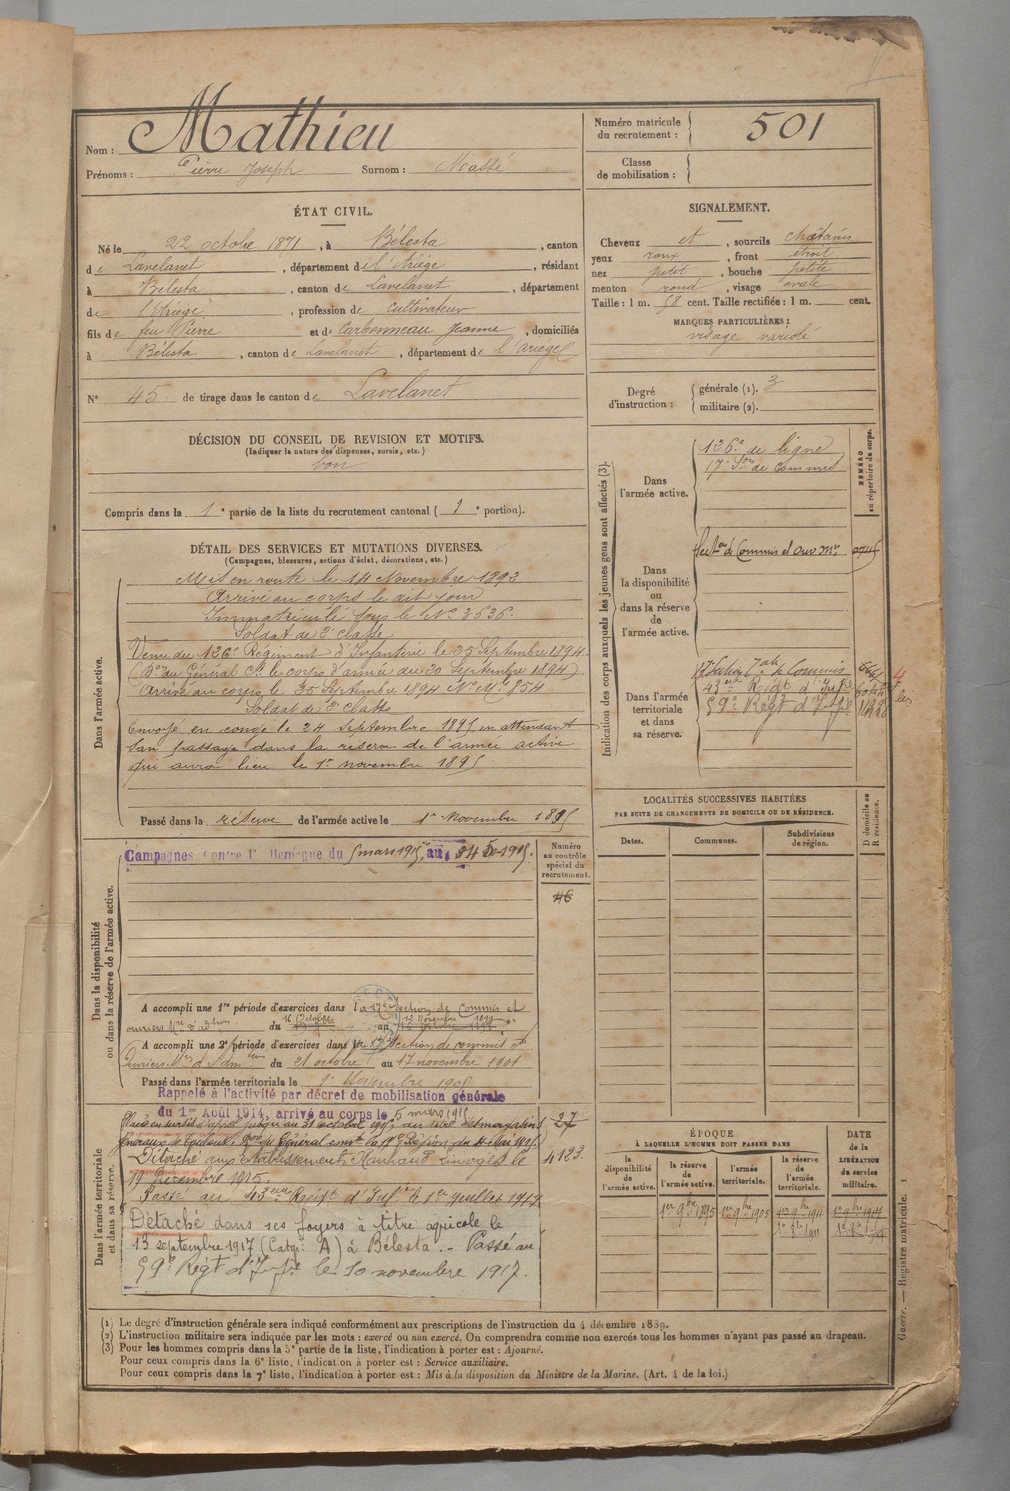 Nom : Mathieu
Prénoms : Pierre Joseph Surnom : Massé
Numéro matricule du recrutement : 501
Classe de mobilisation :
ÉTAT CIVIL.
Né le 22 octobre 1871, à Bélesta, canton
de Lavelanet, département de l'Ariège, résidant
à Bélesta, canton de Lavelanet, département
de l'Ariège, profession de cultivateur
fils de feu Pierre et de Carbonneau Jeanne, domiciliés
à Bélesta, canton de Lavelanet, département de l'Ariège
N° 45 de tirage dans le canton de Lavelanet
SIGNALEMENT.
Cheveux et, sourcils châtains
yeux roux, front étroit
nez petit, bouche petite
menton rond, visage ovale
Taille : 1 m. 58 cent. Taille rectifiée : 1 m. cent.
MARQUES PARTICULIÈRES :
visage variolé
Degré d'instruction : générale (1). 3
militaire (2).
DÉCISION DU CONSEIL DE REVISION ET MOTIFS.
(Indiquer la nature des dispenses, sursis, etc.)
bon
Compris dans la 1e partie de la liste du recrutement cantonal ( 1e portion).
DÉTAIL DES SERVICES ET MUTATIONS DIVERSES.
(Campagnes, blessures, actions d'éclat, décorations, etc.)
Dans l'armée active.
Mis en route le 14 Novembre 1892
Arrivé au corps le dit jour
Immatriculé sous le N° 3636.
Soldat de 2e classe
Venu du 126e Régiment d'Infanterie le 25 Septembre 1894.
(Don du Général Ct le corps d'armée du 20 Septembre 1894)
Arrivé au corps le 25 Septembre 1894 N° Mle 854
Soldat de 2e classe
Envoyé en congé le 24 septembre 1895 en attendant
son passage dans la réserve de l'armée active
qui aura lieu le 1er novembre 1895
Passé dans la réserve de l'armée active le 1er Novembre 1895
Dans la disponibilité ou dans la réserve de l'armée active.
Campagnes contre l'Allemagne du 5 mars 1915, au
Numéro au contrôle spécial du recrutement.
46
A accompli une 1re période d'exercices dans la 17e Section de Commis et
ouvriers Mres d'admon du 16 Octobre au 12 Novembre 1899
A accompli une 2e période d'exercices dans la 17e Section de commis et
Ouvriers Mres d'Admon du 21 octobre au 17 novembre 1901
Passé dans l'armée territoriale le 1er Novembre 1905
Rappelé à l'activité par décret de mobilisation générale
du 1er Août 1914, arrivé au corps le 5 mars 1915
Dans l'armée territoriale et dans sa réserve.
Placé en sursis d'appel jusqu'au 31 octobre 1915, au titre des magasins
généraux de Toulouse.
27
Détaché aux établissements Limoges le
4123.
19 Décembre 1915.
Passé au 43ème Régt d'Infie le 1er Juillet 1917
Détaché dans ses foyers à titre agricole le
13 septembre 1917 (Catgie A) à Bélesta. - Passé au
59e Régt d'Infie le 10 novembre 1917.
Indication des corps auxquels les jeunes gens sont affectés (3).
NUMÉRO au répertoire du corps.
Dans l'armée active.
126e de ligne
17e Son de Commis
Dans la disponibilité ou dans la réserve de l'armée active.
Secton de Commis et Ouv Mres
Dans l'armée territoriale et dans sa réserve.
17e Section Tale de Commis
43ème Régt d'Infie
59e Régt d'Infie
LOCALITÉS SUCCESSIVES HABITÉES
PAR SUITE DE CHANGEMENTS DE DOMICILE OU DE RÉSIDENCE.
Dates. Communes. Subdivisions de région. D domicile ou R résidence.
ÉPOQUE
À LAQUELLE L'HOMME DOIT PASSER DANS
la disponibilité de l'armée active.
la réserve de l'armée active.
l'armée territoriale.
la réserve de l'armée territoriale.
DATE de la LIBÉRATION du service militaire.
1er 9bre 1895 1er 9bre 1905 1er 9bre 1911 1er 9bre 1917
Guerre. — Registre matricule. 1
(1) Le degré d'instruction générale sera indiqué conformément aux prescriptions de l'instruction du 4 décembre 1889.
(2) L'instruction militaire sera indiquée par les mots : exercé ou non exercé. On comprendra comme non exercés tous les hommes n'ayant pas passé au drapeau.
(3) Pour les hommes compris dans la 5e partie de la liste, l'indication à porter est : Ajourné.
Pour ceux compris dans la 6e liste, l'indication à porter est : Service auxiliaire.
Pour ceux compris dans la 7e liste, l'indication à porter est : Mis à la disposition du Ministre de la Marine. (Art. 4 de la loi.)